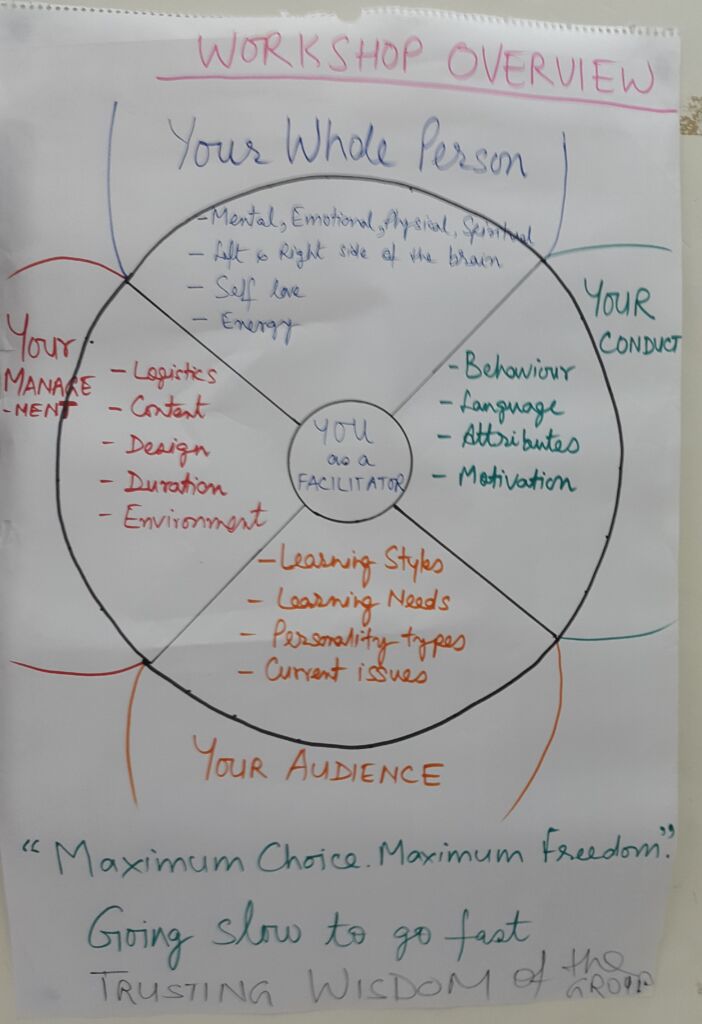 WORKSHOP OVERVIEW
Your Whole Person
- Mental, Emotional, Physical, Spiritual
- Left & Right side of the brain
- Self love
- Energy
YOUR
CONDUCT
- Behaviour
- Language
- Attributes
- Motivation
YOUR
MANAGE
-MENT
- Logistics
- Content
- Design
- Duration
- Environment
YOU
as a
FACILITATOR
- Learning Styles
- Learning Needs
- Personality types
- Current issues
YOUR AUDIENCE
"Maximum Choice. Maximum Freedom."
Going slow to go fast
TRUSTING WISDOM of the
GROUP